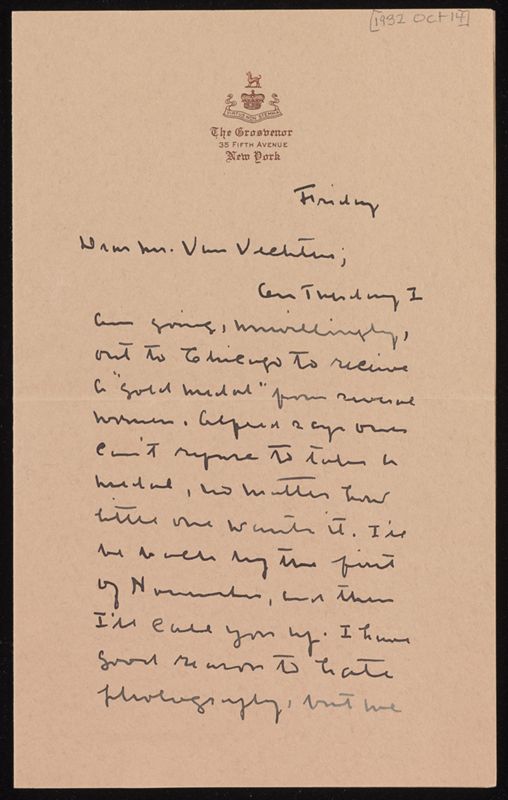 [1932 Oct 14]
VIRTUS NON STEMMA
The Grosvenor
35 FIFTH AVENUE
New York
Friday
Dear Mr. Van Vechten;
On Tuesday I
am going, unwillingly,
out to Chicago to receive
a "gold medal" from several
women. Alfred says one
can't refuse to take a
medal, no matter how
little one wants it. I'll
be back by the first
of November, and then
I'll call you up. I have
good reason to hate
photography, but we